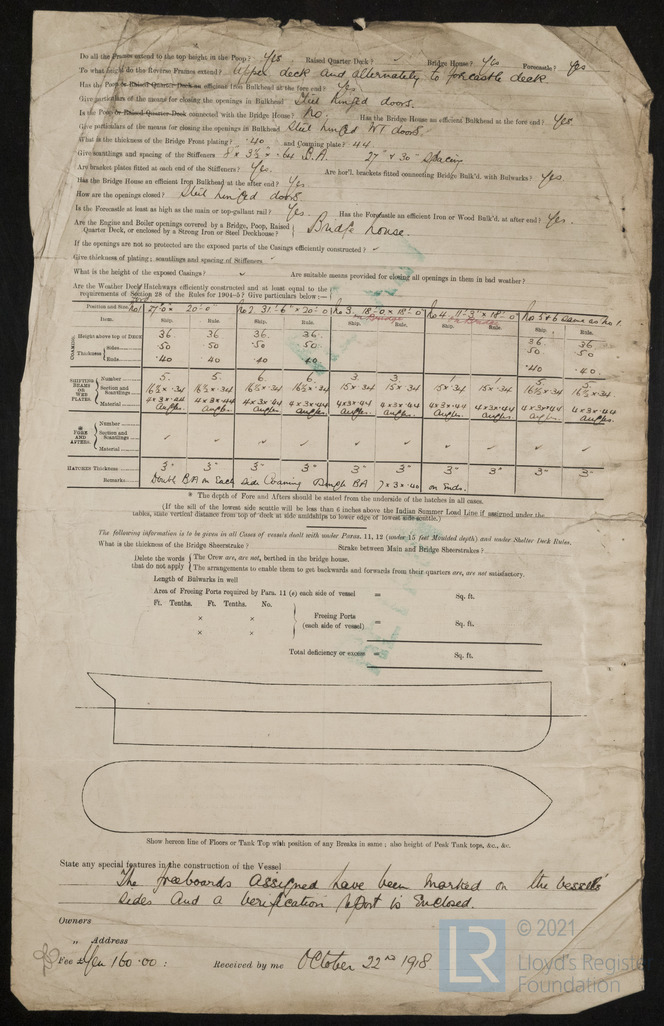 Do all the Frames extend to the top height in the Poop? Yes Raised Quarter Deck? ✓ Bridge House? Yes Forecastle? Yes
To what height do the Reverse Frames extend? Upper deck and alternately to forecastle deck
Has the Poop or Raised Quarter Deck an efficient Iron Bulkhead at the fore end? Yes
Give particulars of the means for closing the openings in Bulkhead Steel hinged doors.
Is the Poop or Raised Quarter Deck connected with the Bridge House? No. Has the Bridge House an efficient Bulkhead at the fore end? Yes.
Give particulars of the means for closing the openings in Bulkhead Steel hinged WT doors.
What is the thickness of the Bridge Front plating? .40 and Coaming plate? .44
Give scantlings and spacing of the Stiffeners 8" x 3½" x .44 B.A. 27" & 30" Spacing
Are bracket plates fitted at each end of the Stiffeners? Yes. Are hor'l. brackets fitted connecting Bridge Bulk'd. with Bulwarks? Yes
Has the Bridge House an efficient Iron Bulkhead at the after end? Yes
How are the openings closed? Steel hinged doors
Is the Forecastle at least as high as the main or top-gallant rail? Yes. Has the Forecastle an efficient Iron or Wood Bulk'd. at after end? Yes.
Are the Engine and Boiler openings covered by a Bridge, Poop, Raised Quarter Deck, or enclosed by a Strong Iron or Steel Deckhouse? Bridge house.
If the openings are not so protected are the exposed parts of the Casings efficiently constructed? ✓
Give thickness of plating; scantlings and spacing of Stiffeners ✓
What is the height of the exposed Casings? ✓ Are suitable means provided for closing all openings in them in bad weather?
Are the Weather Deck Hatchways efficiently constructed and at least equal to the
requirements of Section 28 of the Rules for 1904-5? Give particulars below:—
Position and Size. No 1 27'-0 x 20'-0 No 2. 31'-6" x 20'-0 No 3. 18'-0 x 18'-0 No 4. 11'-3" x 18'-0 No 5 & 6 Same as No 1
in Bridge in Bridge
Item. Ship. Rule. Ship. Rule. Ship. Rule. Ship. Rule. Ship. Rule.
COAMING. Height above top of DECK 36 36 36 36 36 36
Thickness Sides .50 .50 .50 .50 .50 .50
Ends .40 .40 .40 .40 .40 .40
SHIFTING BEAMS OR WEB PLATES. Number 5 5 6 6 3 3 1 1 5 5
Section and Scantlings 16½ x .34 16½ x .34 16½ x .34 16½ x .34 15 x .34 15 x .34 15 x .34 15 x .34 16½ x .34 16½ x .34
4x3x.44 4x3x.44 4x3x.44 4x3x.44 4x3x.44 4x3x.44 4x3x.44 4x3x.44 4x3x.44 4x3x.44
Material Angles. Angles. Angles. Angles. Angles. Angles. Angles. Angles. Angles. Angles.
* FORE AND AFTERS. Number
Section and Scantlings ✓ ✓ ✓ ✓ ✓ ✓ ✓ ✓ ✓ ✓
Material
HATCHES Thickness 3" 3" 3" 3" 3" 3" 3" 3" 3" 3"
Remarks Double BA on Each Side Coaming BA 7 x 3 x .40 on Ends.
* The depth of Fore and Afters should be stated from the underside of the hatches in all cases.
(If the sill of the lowest side scuttle will be less than 6 inches above the Indian Summer Load Line if assigned under the
tables, state vertical distance from top of deck at side amidships to lower edge of lowest side scuttle.)
The following information is to be given in all Cases of vessels dealt with under Paras. 11, 12 (under 15 feet Moulded depth) and under Shelter Deck Rules.
What is the thickness of the Bridge Sheerstrake? Strake between Main and Bridge Sheerstrakes?
Delete the words that do not apply { The Crew are, are not, berthed in the bridge house.
The arrangements to enable them to get backwards and forwards from their quarters are, are not satisfactory.
Length of Bulwarks in well
Area of Freeing Ports required by Para. 11 (e) each side of vessel = Sq. ft.
Ft. Tenths. Ft. Tenths. No.
× × Freeing Ports
× × (each side of vessel) = Sq. ft.
Total deficiency or excess = Sq. ft.
Show hereon line of Floors or Tank Top with position of any Breaks in same; also height of Peak Tank tops, &c., &c.
State any special features in the construction of the Vessel
The freeboards assigned have been marked on the vessels'
sides and a verification report is enclosed.
Owners
„ Address
Fee £ Yen 160.00 : Received by me October 22nd 1918
LR © 2021
Lloyd's Register
Foundation